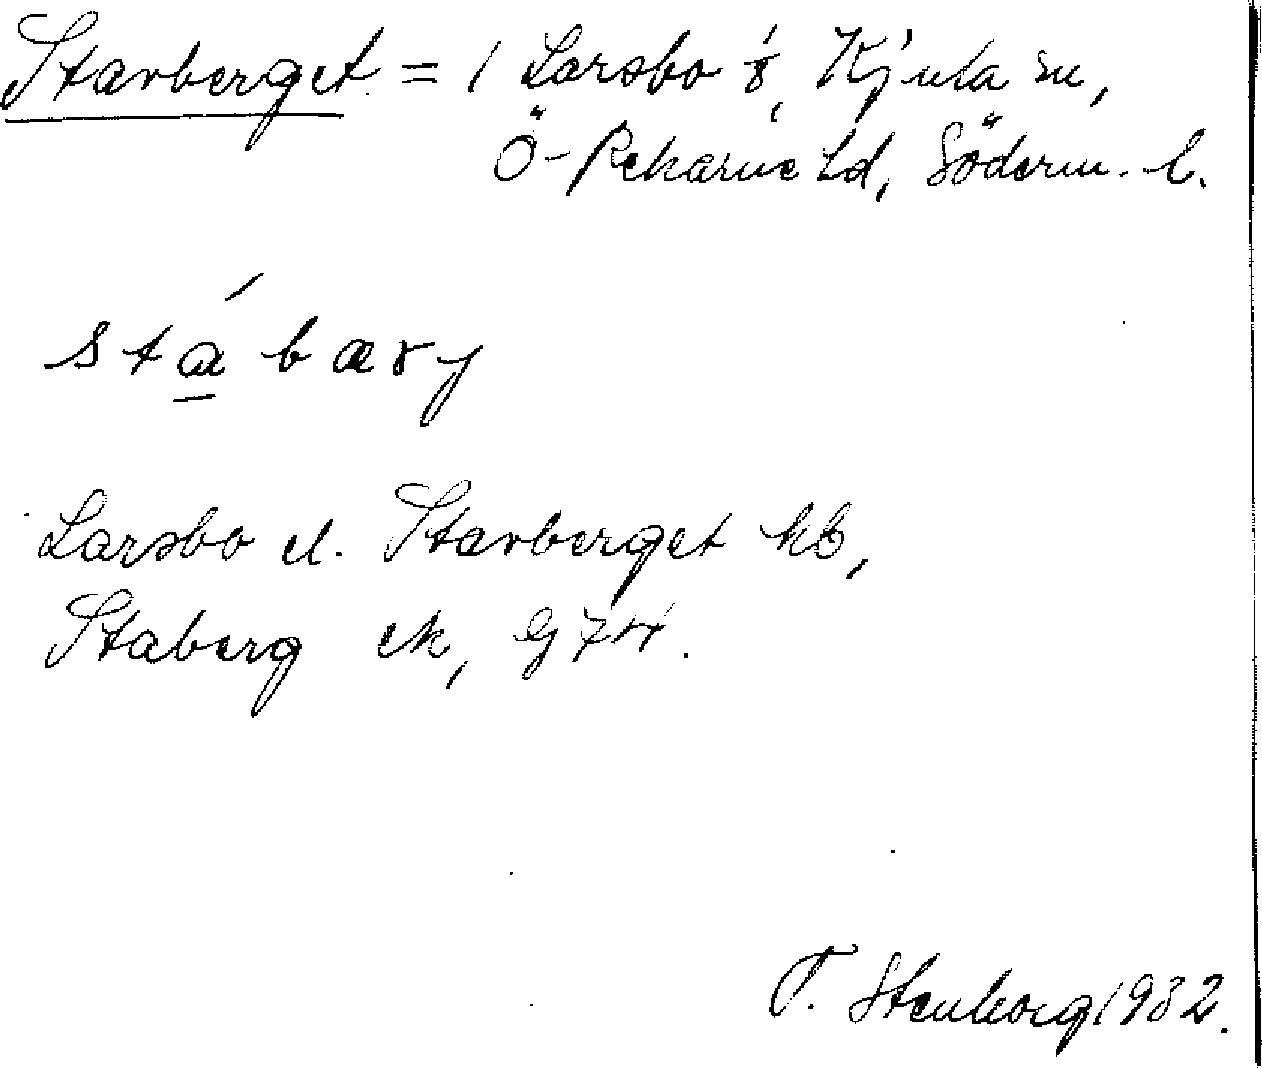 Starberget = 1 Larsbo ɤ́, Kjula sn,
Ö-Rekarne hd, Söderm. l.
stábærj
Larsbo el. Starberget kb,
Staberg ek,
T. Stenborg 1932.